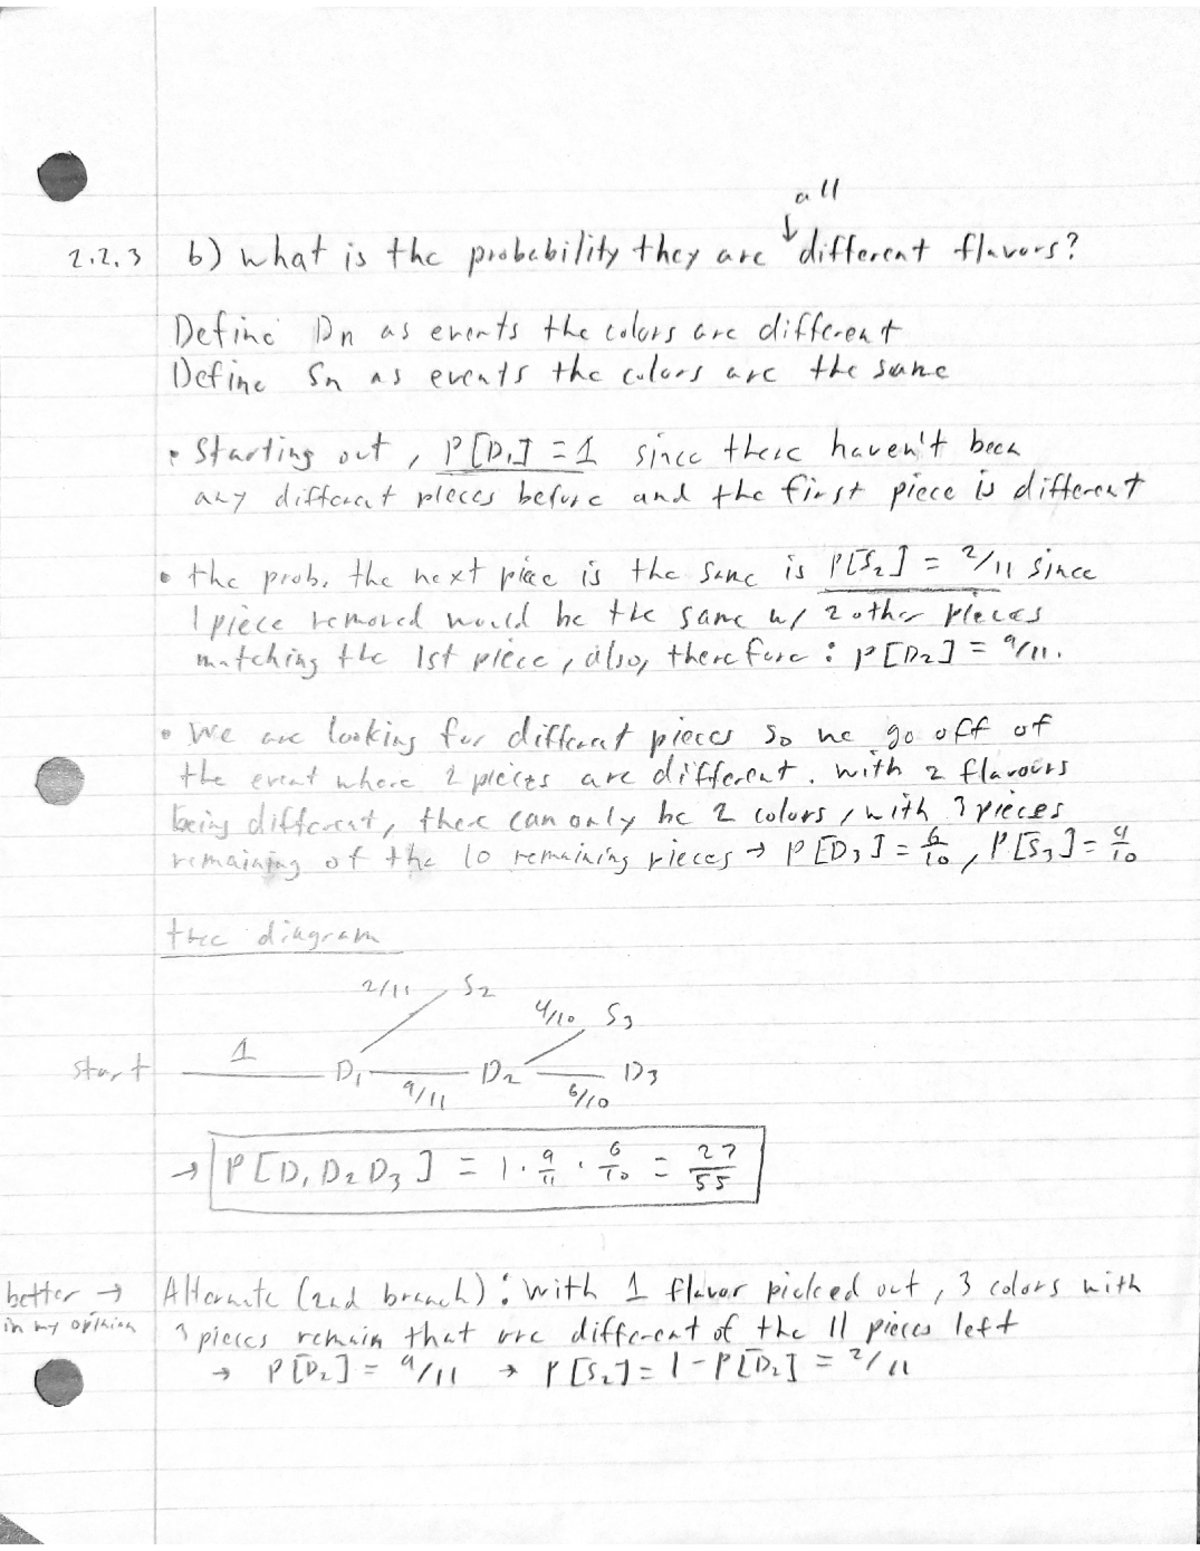 all
2.2.3 b) what is the probability they are ↓ different flavors?
Define Dn as events the colors are different
Define Sn as events the colors are the same
• Starting out, P[D₁] = 1 since there haven't been
any different pieces before and the first piece is different
• the prob. the next piece is the same is P[S₂] = 2/11 since
1 piece removed would be the same w/ 2 other pieces
matching the 1st piece, also, therefore : P[D₂] = 9/11.
• We are looking for different pieces so we go off of
the event where 2 pieces are different. with 2 flavours
being different, there can only be 2 colors, with 3 pieces
remaining of the 10 remaining pieces → P[D₃] = 6/10, P[S₃] = 4/10
tree diagram
2/11 S₂
4/10 S₃
start 1 D₁ 9/11 D₂ 6/10 D₃
→ P[D₁ D₂ D₃] = 1 · 9/11 · 6/10 = 27/55
better → Alternate (2nd branch) : with 1 flavor picked out, 3 colors with
in my opinion 3 pieces remain that are different of the 11 pieces left
→ P[D₂] = 9/11 → P[S₂] = 1 - P[D₂] = 2/11